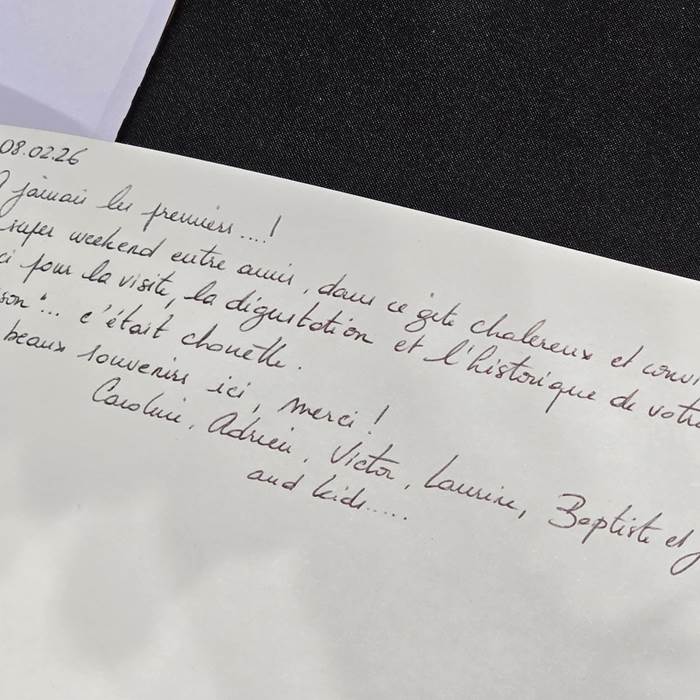 08.02.26
A jamais les premiers....!
super weekend entre amis, dans ce gîte chaleureux et convi
ci pour la visite, la dégustation et l'historique de votre
son"... c'était chouette.
beaux souvenirs ici, merci!
Caroline, Adrien, Victor, Laurine, Baptiste et
and kids.....